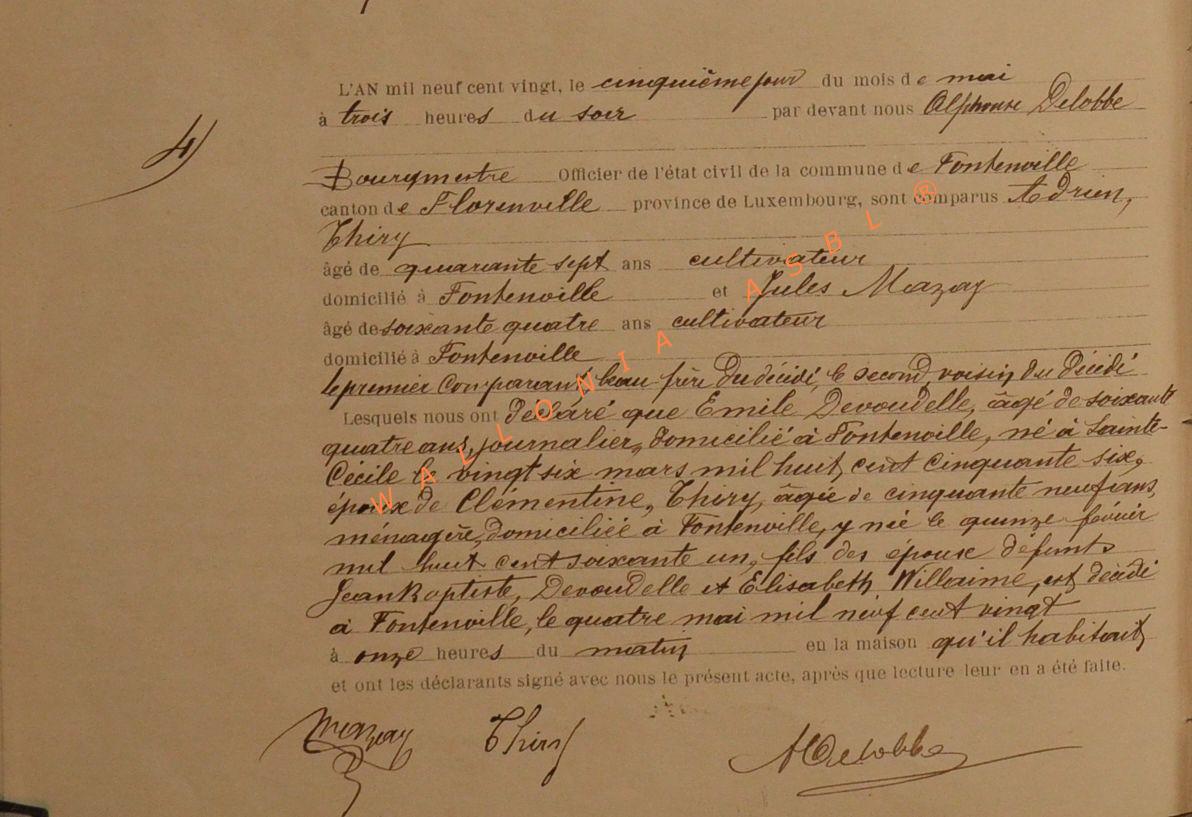 4
L'AN mil neuf cent vingt, le cinquième jour du mois de mai
à trois heures du soir par devant nous Alphonse Delobbe
Bourgmestre Officier de l'état civil de la commune de Fontenoille
canton de Florenville province de Luxembourg, sont comparus Adrien,
Thiry
âgé de quarante sept ans cultivateur
domicilié à Fontenoille et Jules Mazay
âgé de soixante quatre ans cultivateur
domicilié à Fontenoille
le premier comparant beau frère du décédé, le second voisin du décédé
Lesquels nous ont déclaré que Emile Devoudelle, âgé de soixante
quatre ans, journalier, domicilié à Fontenoille, né à Sainte-
Cécile le vingt six mars mil huit cent cinquante six,
époux de Clémentine, Thiry, âgée de cinquante neuf ans,
ménagère, domiciliée à Fontenoille, y née le quinze février
mil huit cent soixante un, fils des époux défunts
Jean Baptiste, Devoudelle et Elisabeth Willaime, est décédé
à Fontenoille, le quatre mai mil neuf cent vingt
à onze heures du matin en la maison qu'il habitait
et ont les déclarants signé avec nous le présent acte, après que lecture leur en a été faite.
Mazay Thiry ADelobbe
WALLONIA ASBL ®